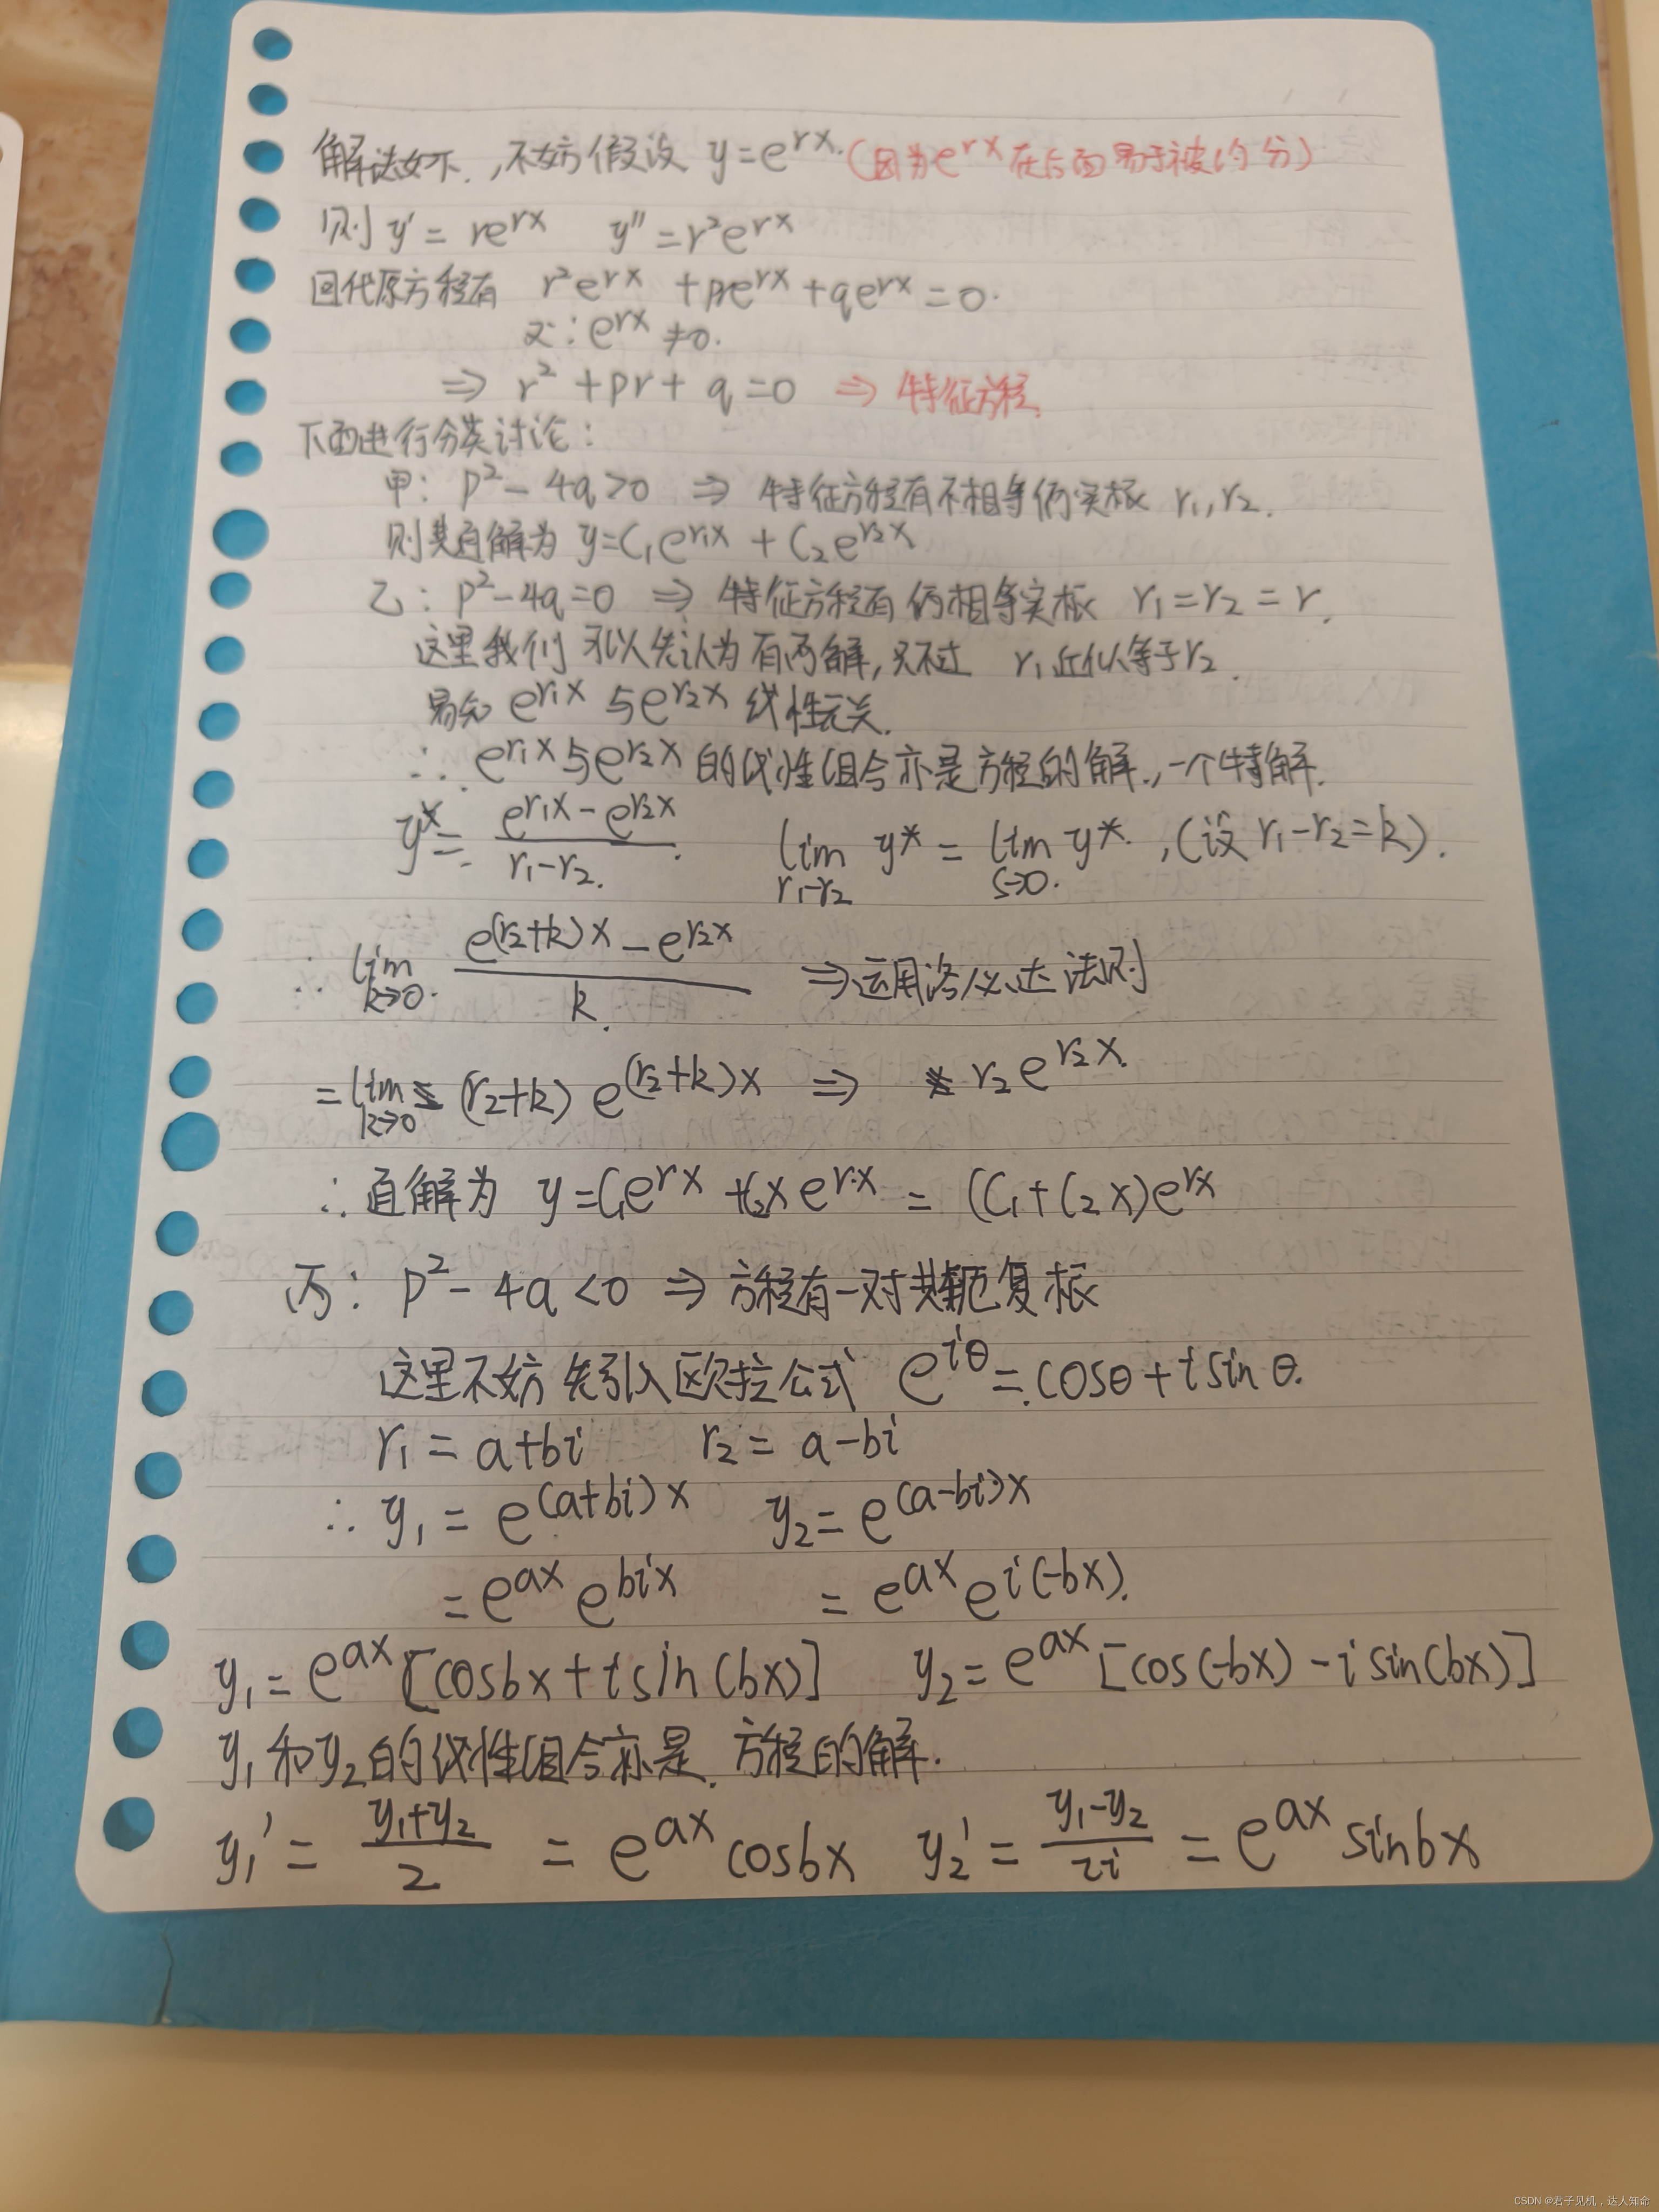 解法如下,不妨假设 y=e^{rx}.(因为e^{rx}在后面易于被约分)
则 y'=re^{rx} y''=r²e^{rx}
回代原方程有 r²e^{rx}+pre^{rx}+qe^{rx}=0.
又∵e^{rx}≠0.
⇒ r²+pr+q=0 ⇒ 特征方程.
下面进行分类讨论:
甲: p²-4q>0 ⇒ 特征方程有不相等俩实根 r₁,r₂.
则其通解为 y=C₁e^{r₁x}+C₂e^{r₂x}
乙: p²-4q=0 ⇒ 特征方程有俩相等实根 r₁=r₂=r.
这里我们可以先认为有两解,只不过 r₁近似等于r₂.
易知 e^{r₁x}与e^{r₂x}线性无关.
∴ e^{r₁x}与e^{r₂x}的线性组合亦是方程的解.,一个特解.
y*=\frac{e^{r₁x}-e^{r₂x}}{r₁-r₂}. \lim_{r₁→r₂} y*=\lim_{s→0} y*.,(设 r₁-r₂=k).
∴ \lim_{k→0} \frac{e^{(r₂+k)x}-e^{r₂x}}{k} ⇒运用洛必达法则
=\lim_{k→0} (r₂+k)e^{(r₂+k)x} ⇒ r₂e^{r₂x}.
∴ 通解为 y=C₁e^{rx}+C₂xe^{r·x}=(C₁+C₂x)e^{rx}
丙: p²-4q<0 ⇒ 方程有一对共轭复根
这里不妨先引入欧拉公式 e^{iθ}=cosθ+isinθ.
r₁=a+bi r₂=a-bi
∴ y₁=e^{(a+bi)x} y₂=e^{(a-bi)x}
=e^{ax}e^{bix} =e^{ax}e^{i(-bx)}.
y₁=e^{ax}[cosbx+isin(bx)] y₂=e^{ax}[cos(-bx)-isin(bx)]
y₁和y₂的线性组合亦是.方程的解.
y₁'=\frac{y₁+y₂}{2}=e^{ax}cosbx y₂'=\frac{y₁-y₂}{2i}=e^{ax}sinbx
CSDN @君子见机,达人知命